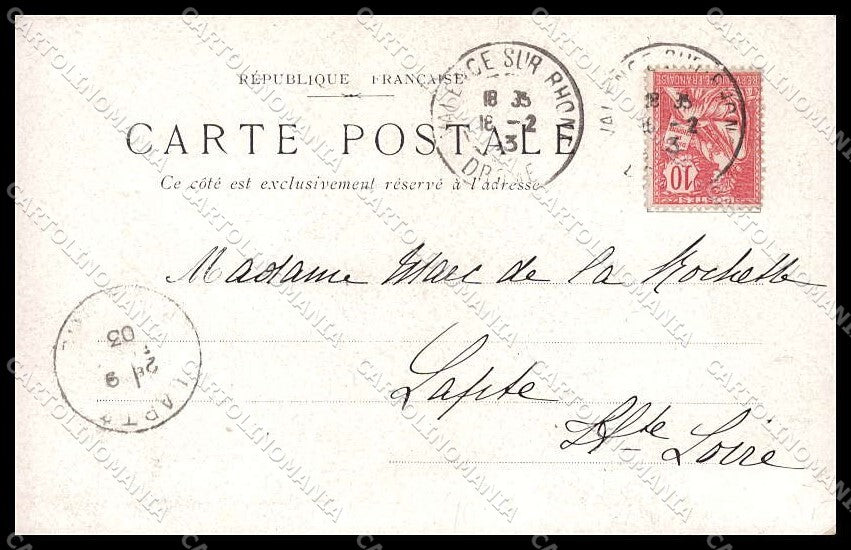 RÉPUBLIQUE FRANÇAISE
CARTE POSTALE
Ce côté est exclusivement réservé à l'adresse
VALENCE SUR RHONE
18 35
16 -2
3
DROME
VALENCE SUR RHONE
18 35
16 -2
3
REPUBLIQUE FRANÇAISE
10
POSTES
Madame Marc de la Rochette
Lapte
Hte Loire
03
CARTOLINOMANIA